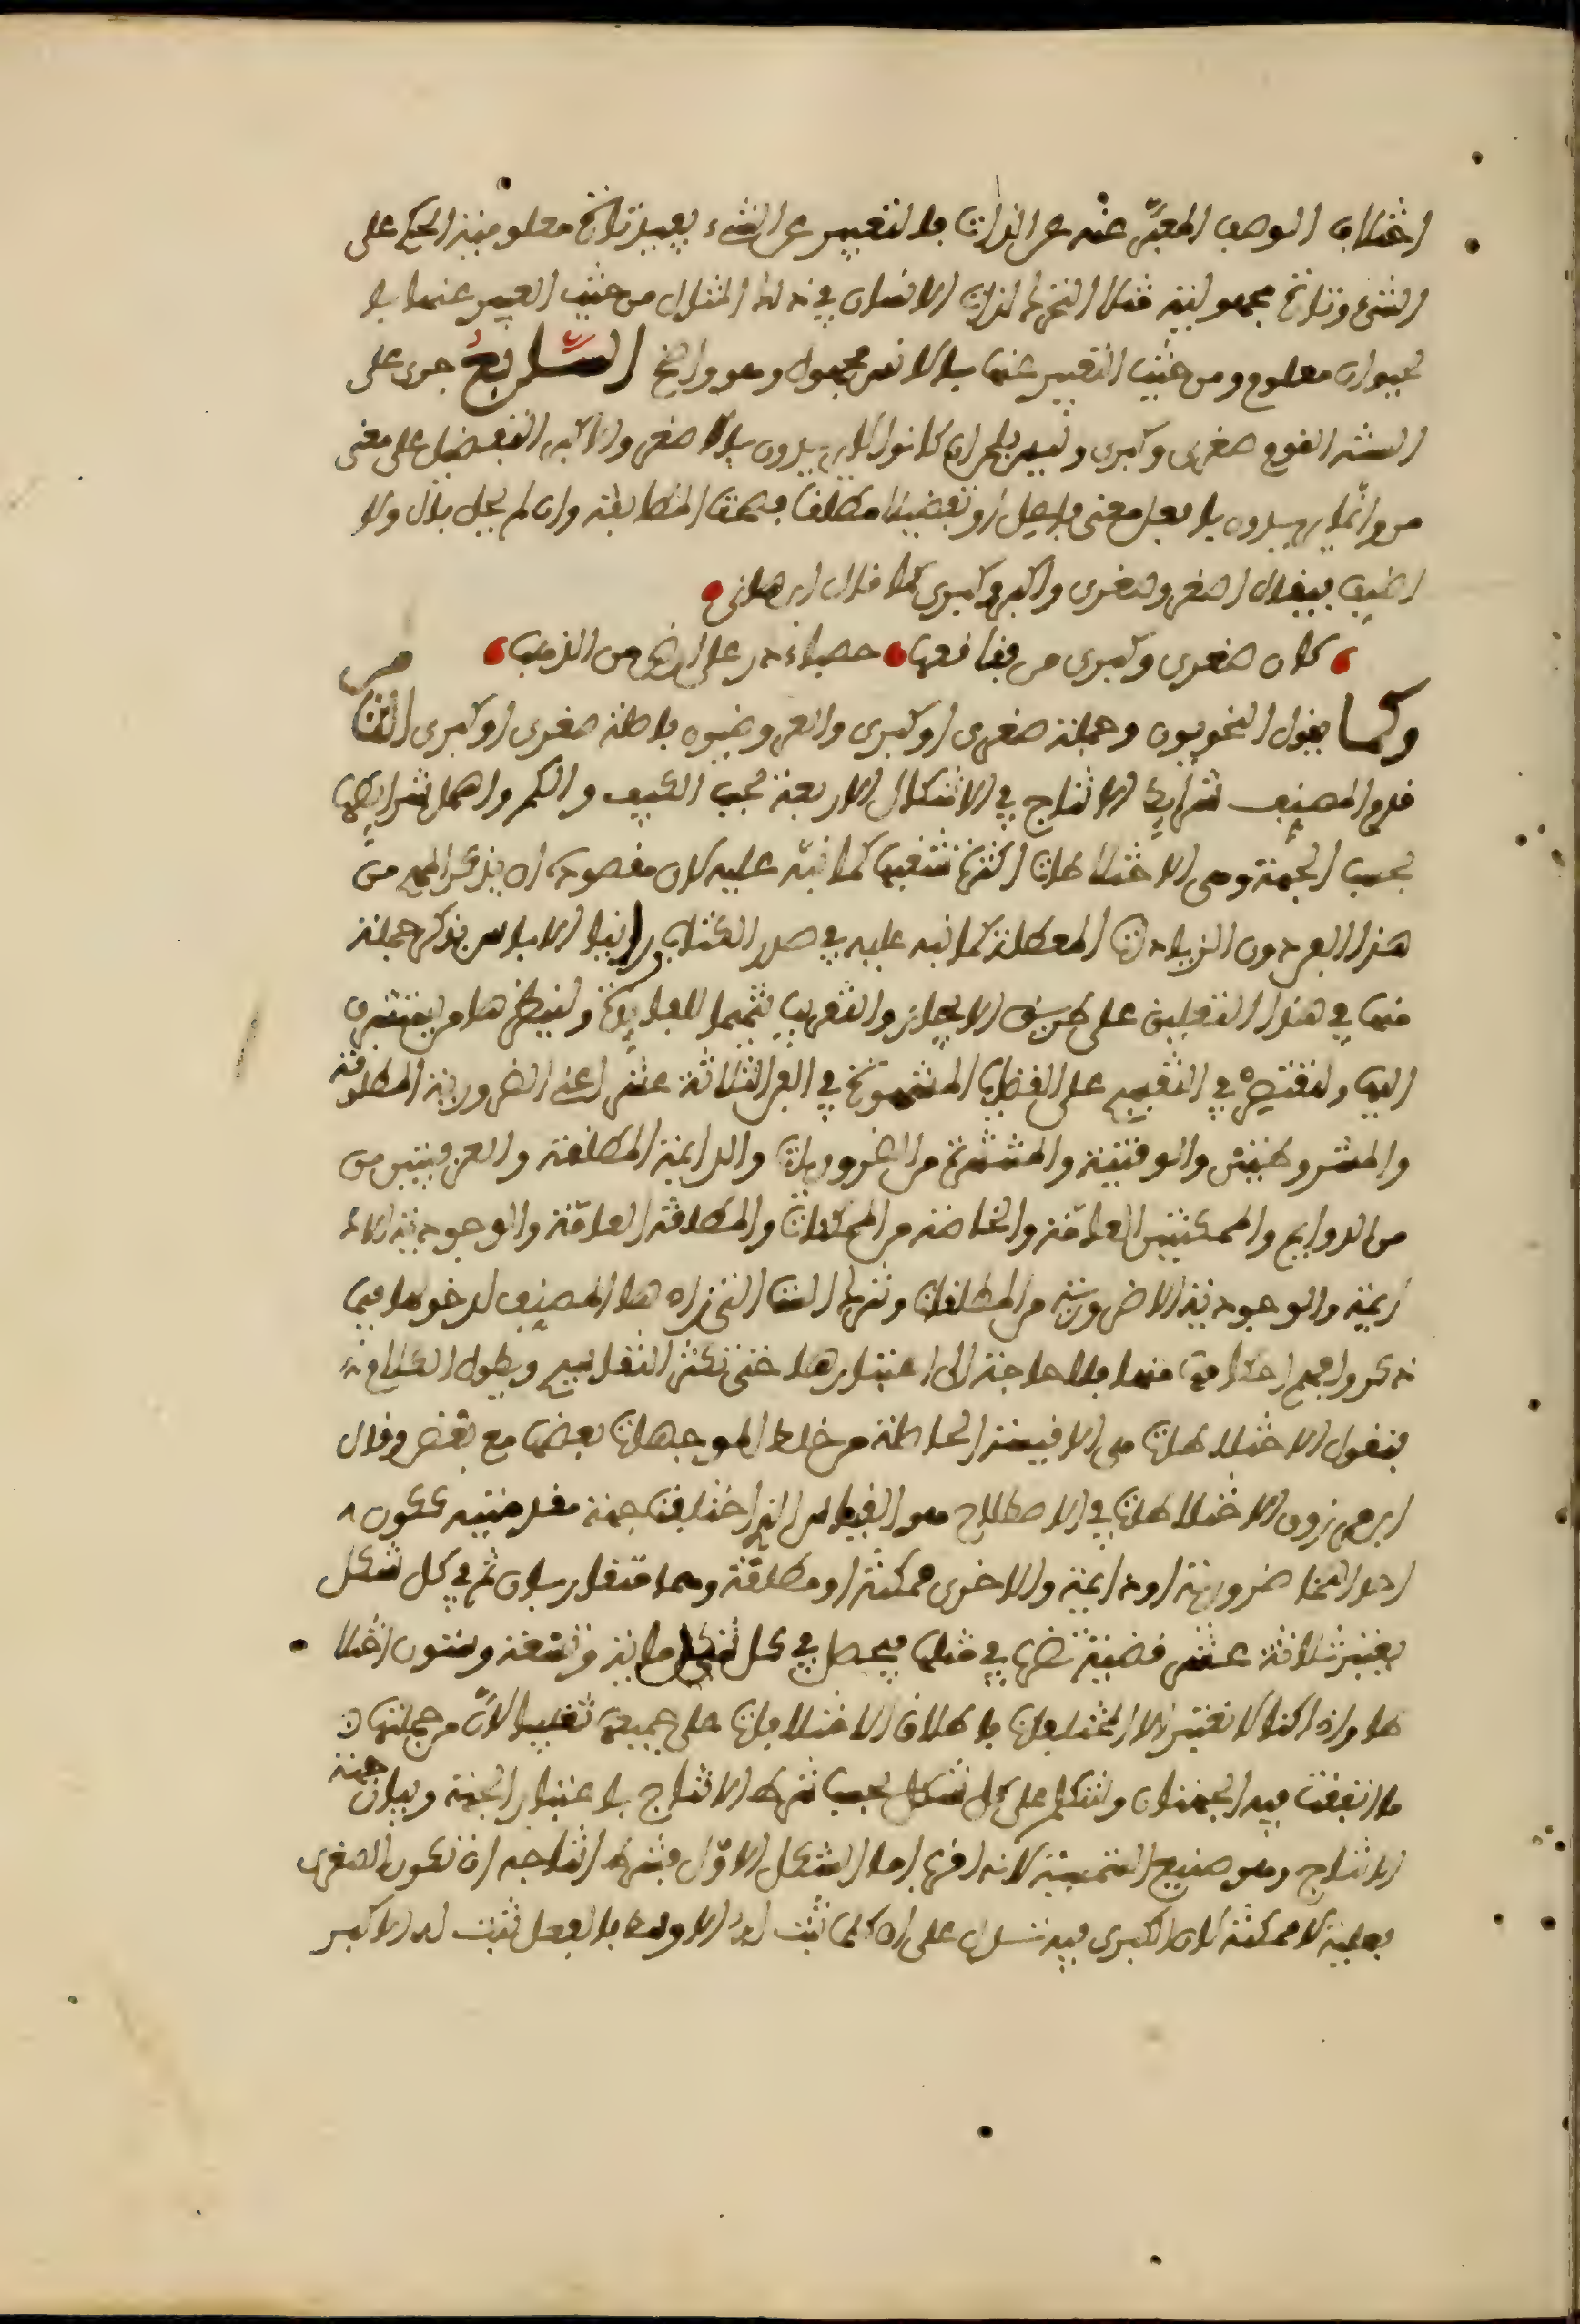 اختلاف الوصف المعبر عنه عن الذات فالتعبير عن الشيء يفيد تارة معلومية الحكم على
الشيء وتارة مجهوليته مثلا التحرك لذات الانسان في ذلك المثال من حيث التعبير عنها با
لحيوان معلوم ومن حيث التعبير عنها بالانس مجهول وهو واضح السابع جرى على
السنة القوم صغرى وكبرى وليس بلحن ان كانوا لا يريدون بالاصغر والاكبر التفضيل على معنى
من وانما يريدون بافعل معنى فاعل او تفضيلا مطلقا فيجب المطابقة وان لم يحل بال ولا
اضيف فيقال اصغر وصغرى واكبر وكبرى كما قال ابن هانئ
كان صغرى وكبرى من فقاقعها حصباء در على ارض من الذهب
وكما يقول النحويون وجملة صغرى او كبرى والعروضيون فاصلة صغرى او كبرى الثامن
قدم المصنف شرايط الانتاج في الاشكال الاربعة بحسب الكيف والكم واهمل شرايطها
بحسب الجهة وهي الاختلاطات لكثرة تشعبها كما نبه عليه لان مقصوده ان يذكر المهم من
هذا الفن دون الزيادات المعطلة كما نبه عليه في صدر الكتاب راينا الا باس بذكر جملة
منها في هذا التعليق على طريق الايجاز والتقريب تتميما للفايدة ولينظرها من يتشوف
اليها ولنقتصر في التقسيم على القضايا المشهورة في الفن الثلاثة عشر اعني الضرورية المطلقة
والمشروطتين والوقتية والمنتشرة من الضروريات والدايمة المطلقة والعرفيتين من
من الدوايم والممكنتين العامة والخاصة من الممكنات والمطلقة العامة والوجودية اللاد
ايمة والوجودية اللاضرورية من المطلقات ونترك الستا التي زادها المصنف لدخولها فيما
ذكر واجمع احكامها منها فلا حاجة الى اعتبارها حتى تكثر التقاسيم ويطول الكلام
فنقول الاختلاطات هي الاقيسة الحاصلة من خلط الموجهات بعضها مع بعض وقال
ابن مرزوق الاختلاطات في الاصطلاح هو القياس الذي اختلفت جهة مقدمتيه ككون
احداهما ضرورية او دايمة والاخرى ممكنة او مطلقة وهما متقاربان ثم في كل شكل
يعتبر ثلاثة عشر قضية تضرب في مثلها فيحصل في كل شكل ماية وتسعة وستون اختلا
طا واذا كنا لا نعتبر الا المختلفات فاطلاق الاختلافات على جميعها تغليبا لان من جملتها
ما اتفقت فيه الجهتان ولنتكلم على كل شكل بحسب شرط الانتاج باعتبار الجهة وبيان جهة
الانتاج وهو صنيع الشمسية لانه اقرب اما الشكل الاول فشرط انتاجه ان تكون الصغرى
فعلية لا ممكنة لان الكبرى فيه تدل على ان كلما ثبت له الاوسط بالفعل ثبت له الاكبر